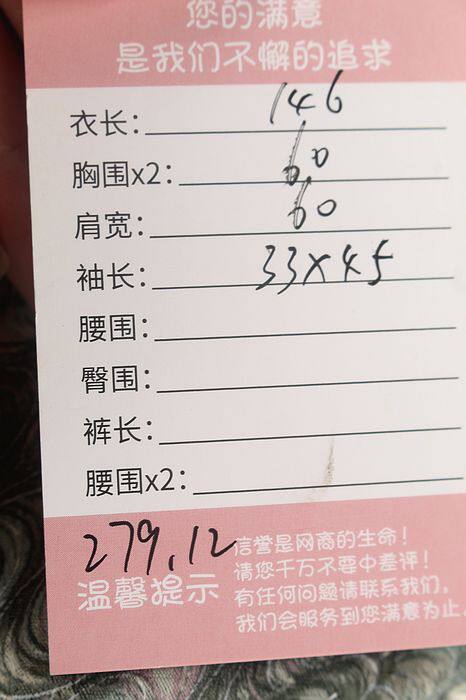 您的满意
是我们不懈的追求
衣长：146
胸围x2：60
肩宽：60
袖长：33×45
腰围：
臀围：
裤长：
腰围x2：
279.12
温馨提示
信誉是网商的生命！
请您千万不要中差评！
有任何问题请联系我们，
我们会服务到您满意为止。